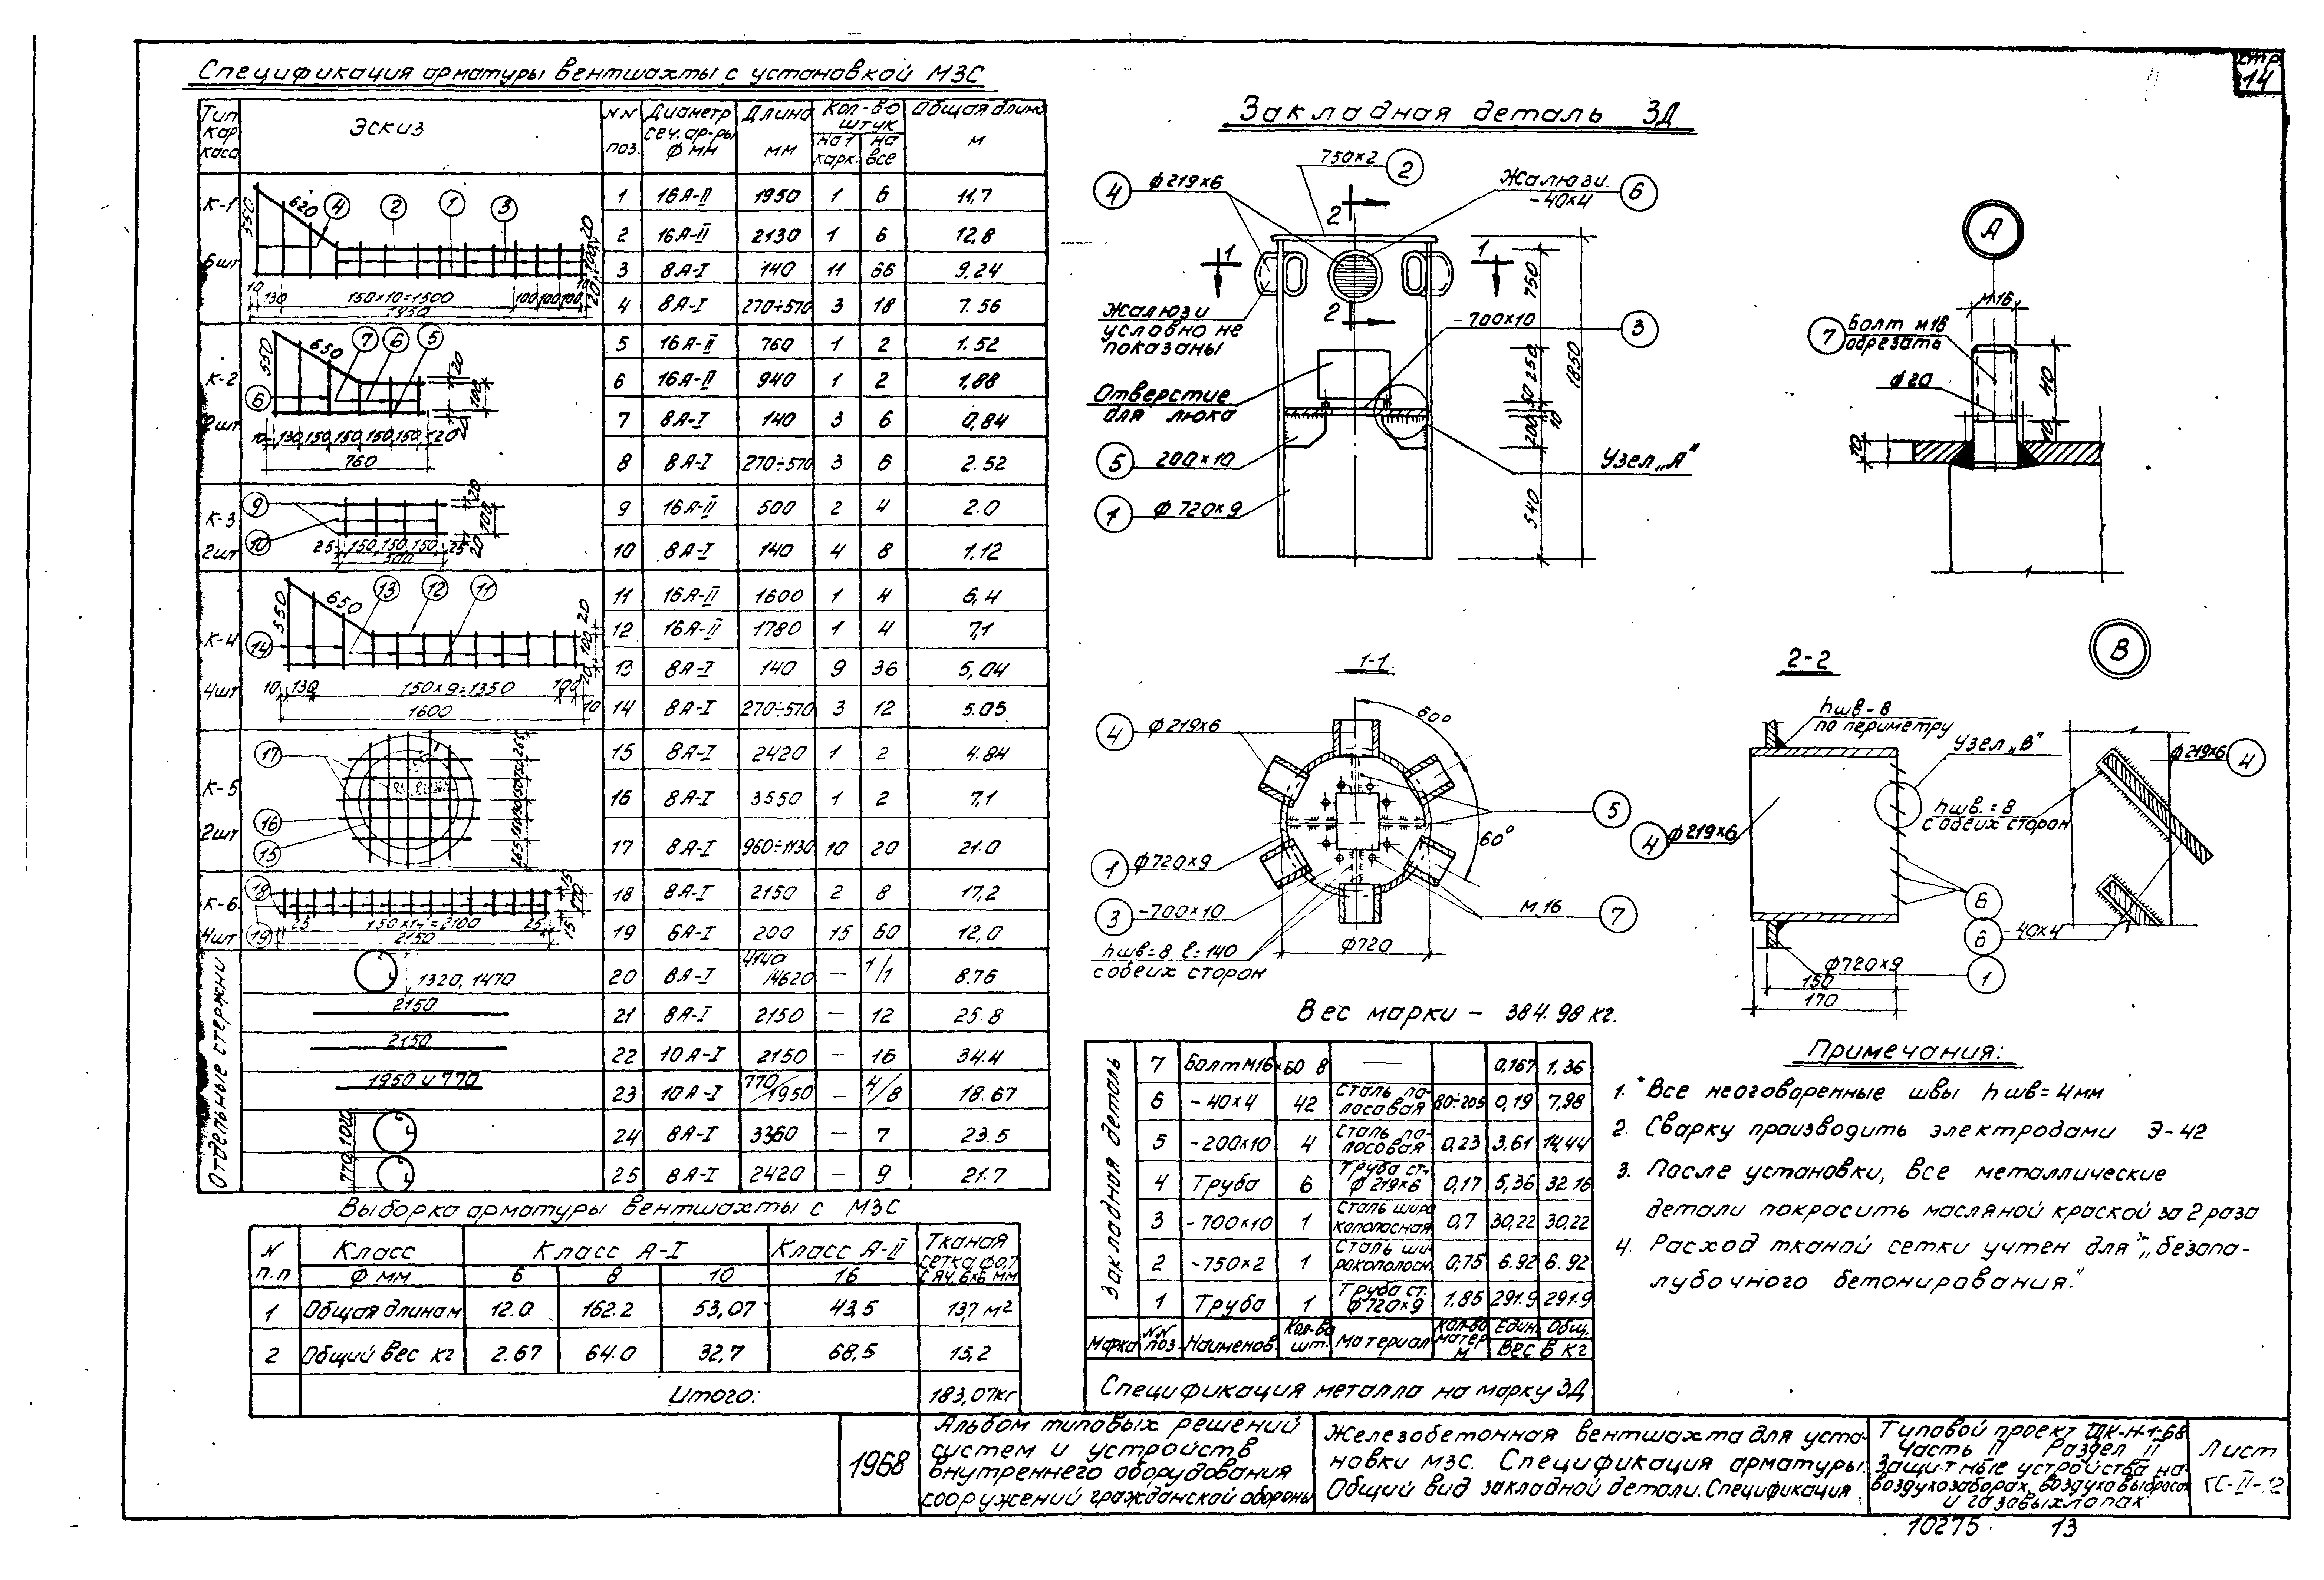 стр. 14
Спецификация арматуры вентшахты с установкой МЗС
Тип каркаса | Эскиз | №№ поз. | Диаметр сеч. ар-ры Ф мм | Длина мм | Кол-во штук на 1 карк. | на все | Общая длина м
К-1 6шт
550 620 4 2 1 3 20 100 20
10 130 150×10=1500 100 100 100 10
1950
1 16А-II 1950 1 6 11,7
2 16А-II 2130 1 6 12,8
3 8А-I 140 11 66 9,24
4 8А-I 270÷570 3 18 7.56
К-2 2шт
550 650 7 6 5 20 100 20
6
10 130 150 150 150 150 120
760
5 16А-II 760 1 2 1.52
6 16А-II 940 1 2 1,88
7 8А-I 140 3 6 0,84
8 8А-I 270÷570 3 6 2.52
К-3 2шт
9 10 20 100 20
25 150 150 150 25
500
9 16А-II 500 2 4 2.0
10 8А-I 140 4 8 1.12
К-4 4шт
550 650 13 12 11 20 100 20
14
10 130 150×9=1350 100 10
1600
11 16А-II 1600 1 4 6,4
12 16А-II 1780 1 4 7,1
13 8А-I 140 9 36 5,04
14 8А-I 270÷570 3 12 5.05
К-5 2шт
17 16 15
265 150 150 265
15 8А-I 2420 1 2 4.84
16 8А-I 3550 1 2 7,1
17 8А-I 960÷1130 10 20 21.0
К-6 4шт
18 19 15 170 15
25 150×14=2100 25
2150
18 8А-I 2150 2 8 17,2
19 6А-I 200 15 60 12,0
Отдельные стержни
1320, 1470
20 8А-I 4140/4620 — 1/1 8.76
2150
21 8А-I 2150 — 12 25.8
2150
22 10А-I 2150 — 16 34.4
1950 и 770
23 10А-I 770/1950 — 4/8 18.67
1020
24 8А-I 3360 — 7 23.5
770
25 8А-I 2420 — 9 21.7
Выборка арматуры вентшахты с МЗС
N п.п | Класс | Класс А-I | Класс А-II | Тканая сетка ф0,7 с яч. 6×6 мм
Ф мм 6 8 10 16
1 Общая длина м 12.0 162.2 53,07 43,5 137 м²
2 Общий вес кг 2.67 64.0 32,7 68,5 15,2
Итого: 183,07кг
Закладная деталь ЗД
4 ф219×6
750×2 2
Жалюзи -40×4 6
1 1
2 2
Жалюзи
условно не
показаны
-700×10 3
Отверстие
для люка
5 200×10
1 ф720×9
Узел „А"
750 250 50 10 200 540
1850
А
М16
7 Болт М16
обрезать
ф20
40
10
10
1-1
4 ф219×6
60°
60°
5
1 ф720×9
3 -700×10
М16 7
hшв=8 l=140
с обеих сторон
ф720
2-2
hшв-8
по периметру
Узел „В"
4 ф219×6
6
6 -40×4
ф720×9 1
150
170
В
ф219×6 4
hшв.=8
с обеих сторон
Вес марки – 384.98 кг.
Закладная деталь
7 Болт М16×60 8 — 0,167 1,36
6 -40×4 42 Сталь полосовая 80÷205 0,19 7,98
5 -200×10 4 Сталь полосовая 0,23 3,61 14,44
4 Труба 6 Труба ст. ф219×6 0,17 5,36 32.16
3 -700×10 1 Сталь широкополосная 0,7 30,22 30,22
2 -750×2 1 Сталь широкополосн. 0,75 6.92 6.92
1 Труба 1 Труба ст. ф720×9 1,85 291.9 291.9
Марка | №№ поз. | Наименов. | Кол-во шт. | Материал | Кол-во матер м | Един. | Общ. | Вес в кг
Спецификация металла на марку ЗД
Примечания:
1. Все неоговоренные швы hшв=4мм
2. Сварку производить электродами Э-42
3. После установки, все металлические
детали покрасить масляной краской за 2 раза
4. Расход тканой сетки учтен для „безопа-
лубочного бетонирования."
1968
Альбом типовых решений
систем и устройств
внутреннего оборудования
сооружений гражданской обороны
Железобетонная вентшахта для уста-
новки МЗС. Спецификация арматуры.
Общий вид закладной детали. Спецификация
Типовой проект ТДК-Н-1-68
Часть II Раздел II
Защитные устройства на
воздухозаборах, воздуховыбросах
и газовыхлопах
Лист
ГС-II-12
10275 13